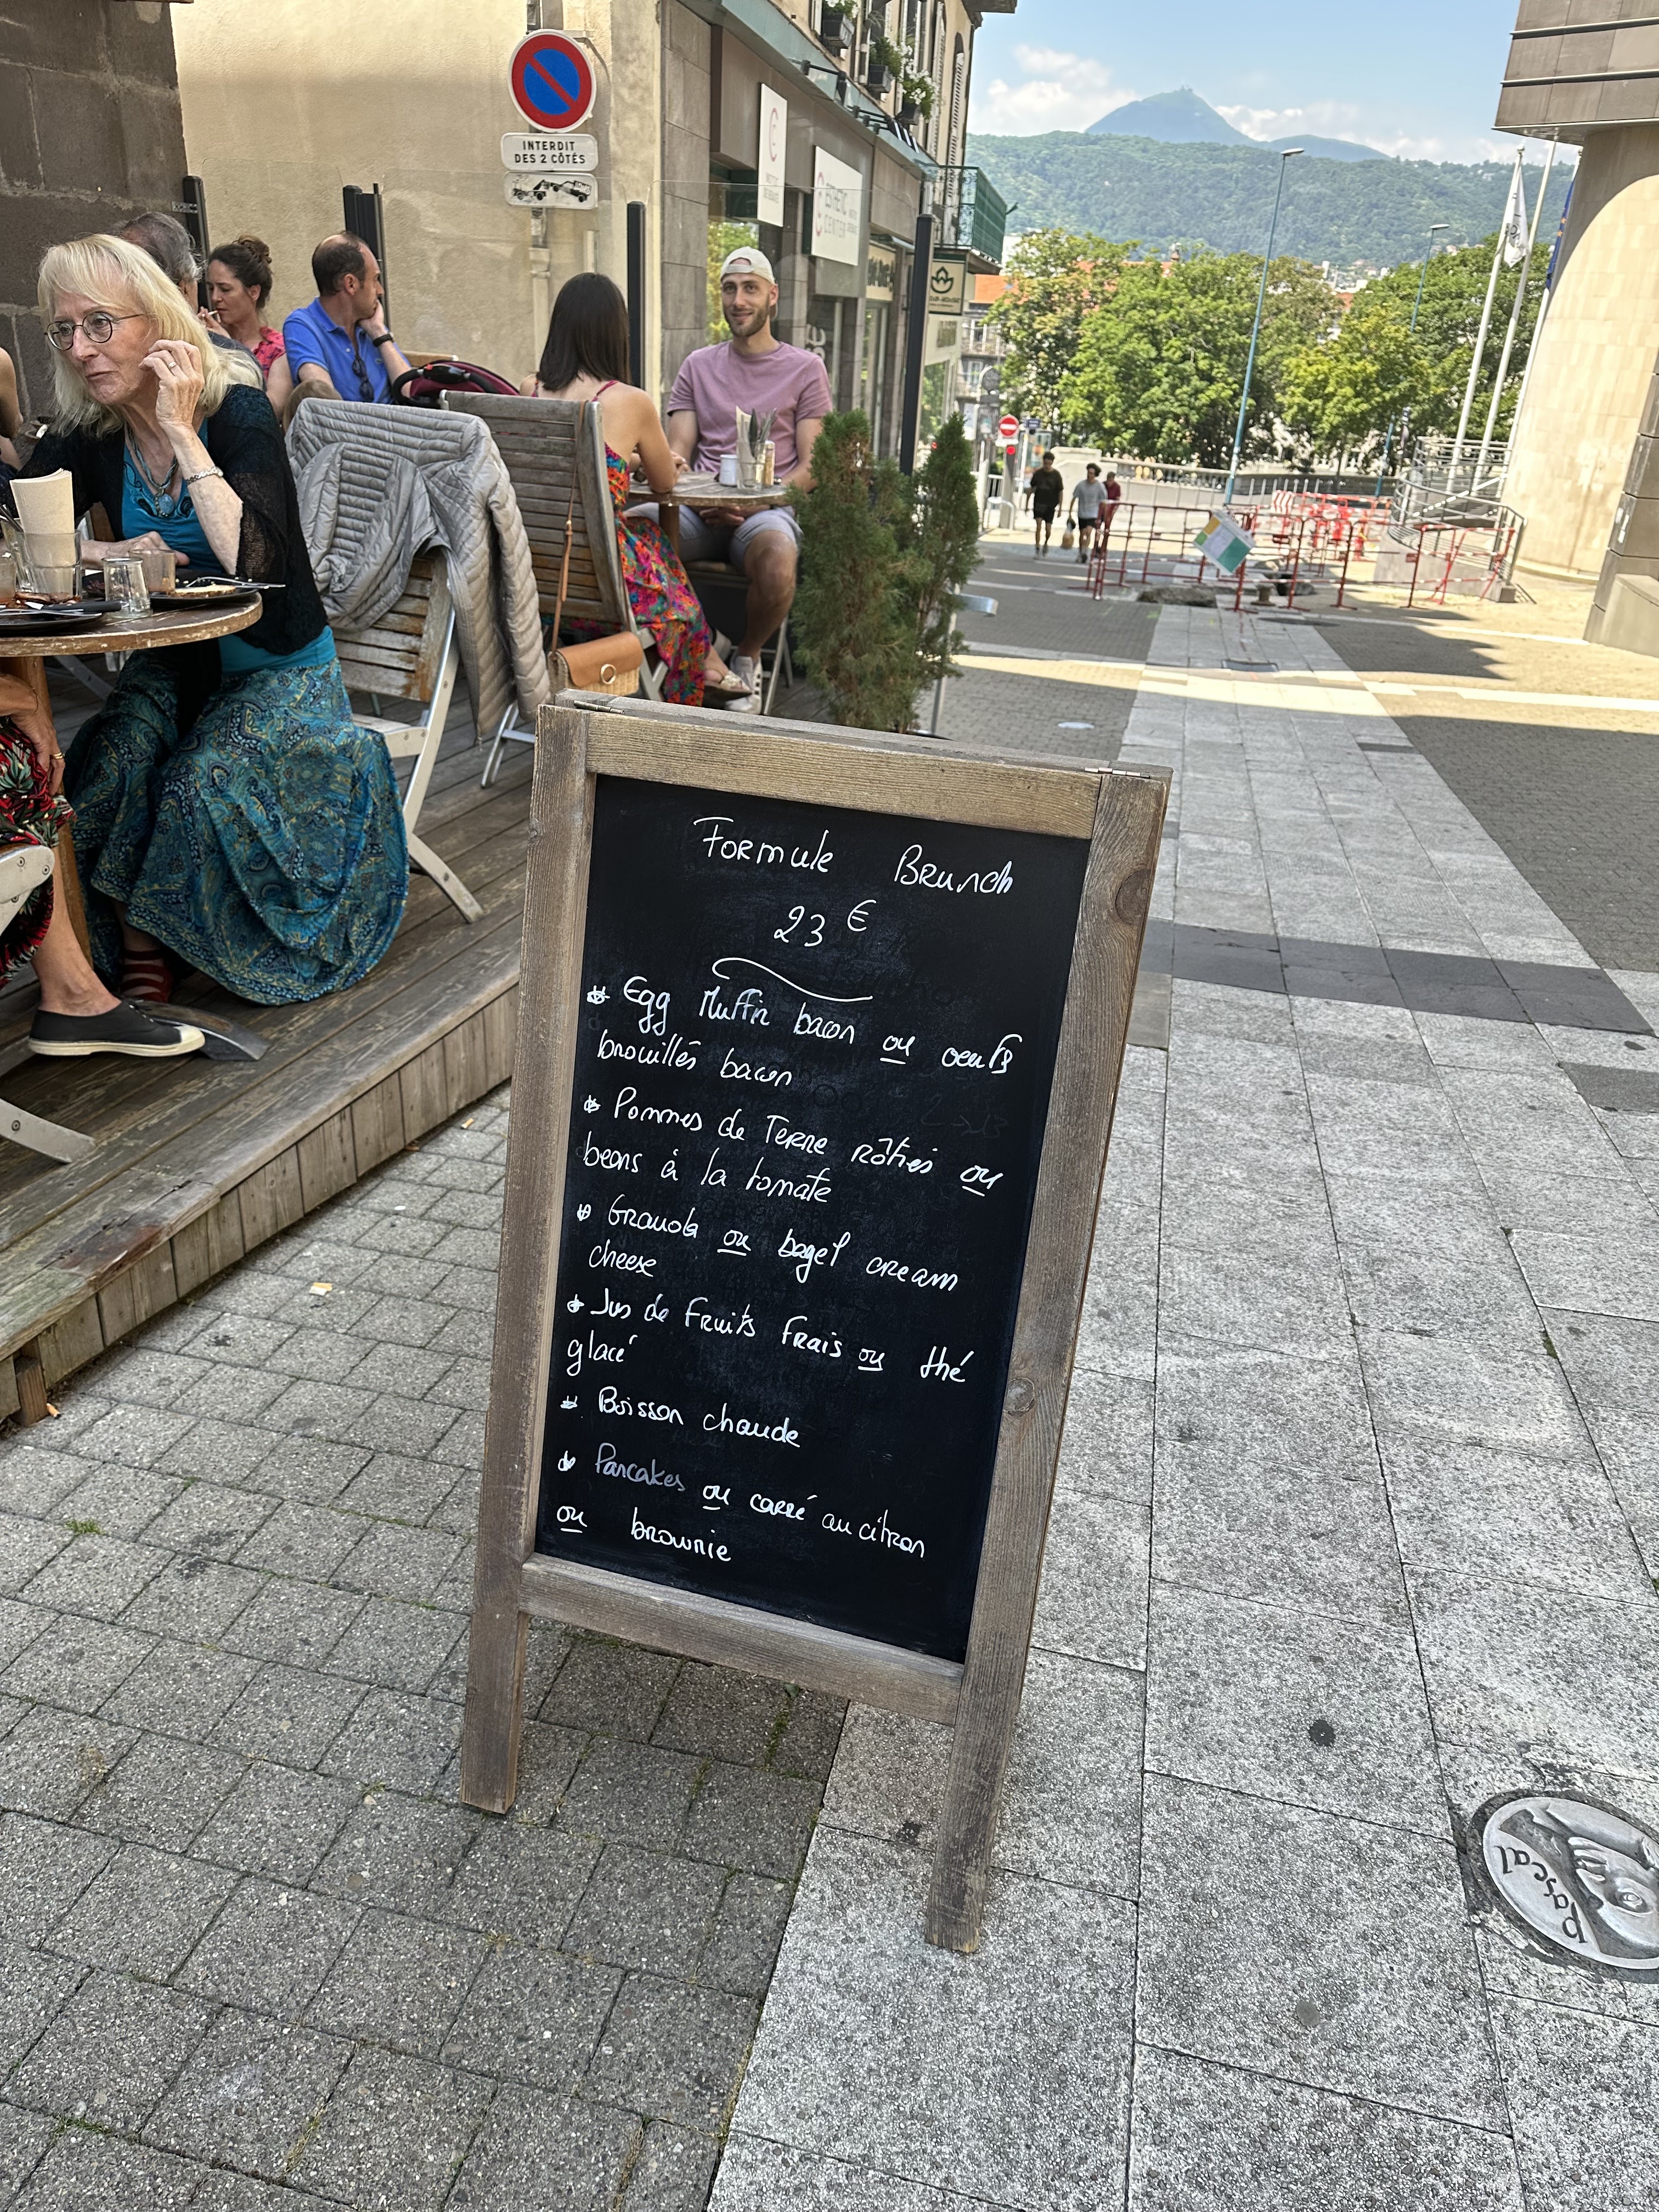 INTERDIT
DES 2 CÔTÉS
ESTHETIC
CENTER
Formule Brunch
23 €
Egg Muffin bacon ou oeufs
brouillés bacon
Pommes de Terre rôties ou
beans à la tomate
Granola ou bagel cream
cheese
Jus de Fruits frais ou thé
glacé
Boisson chaude
Pancakes ou carré au citron
ou brownie
Pascal